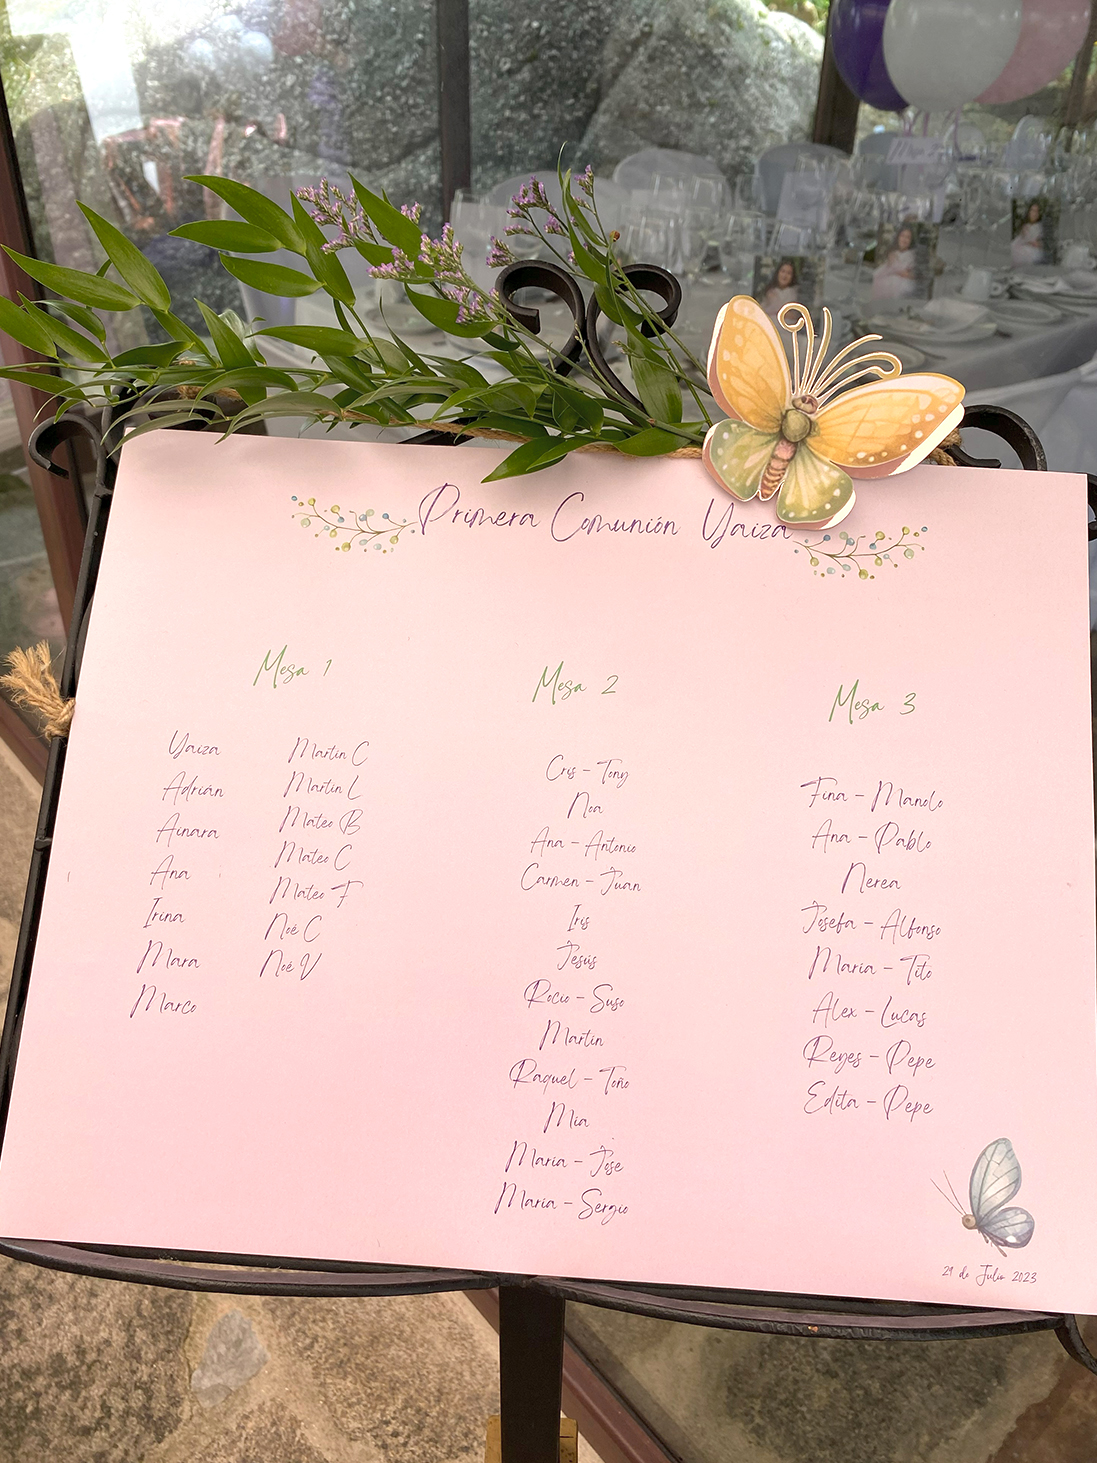 Primera Comunión Yaiza
Mesa 1
Yaiza
Adrián
Ainara
Ana
Irina
Mara
Marco
Martín C
Martín L
Mateo B
Mateo C
Mateo F
Noé C
Noé V
Mesa 2
Cris - Tony
Noa
Ana - Antonio
Carmen - Juan
Iris
Jesús
Rocío - Suso
Martín
Raquel - Toño
Mía
María - Jose
María - Sergio
Mesa 3
Fina - Manolo
Ana - Pablo
Nerea
Josefa - Alfonso
María - Tito
Alex - Lucas
Reyes - Pepe
Edita - Pepe
29 de Julio 2023